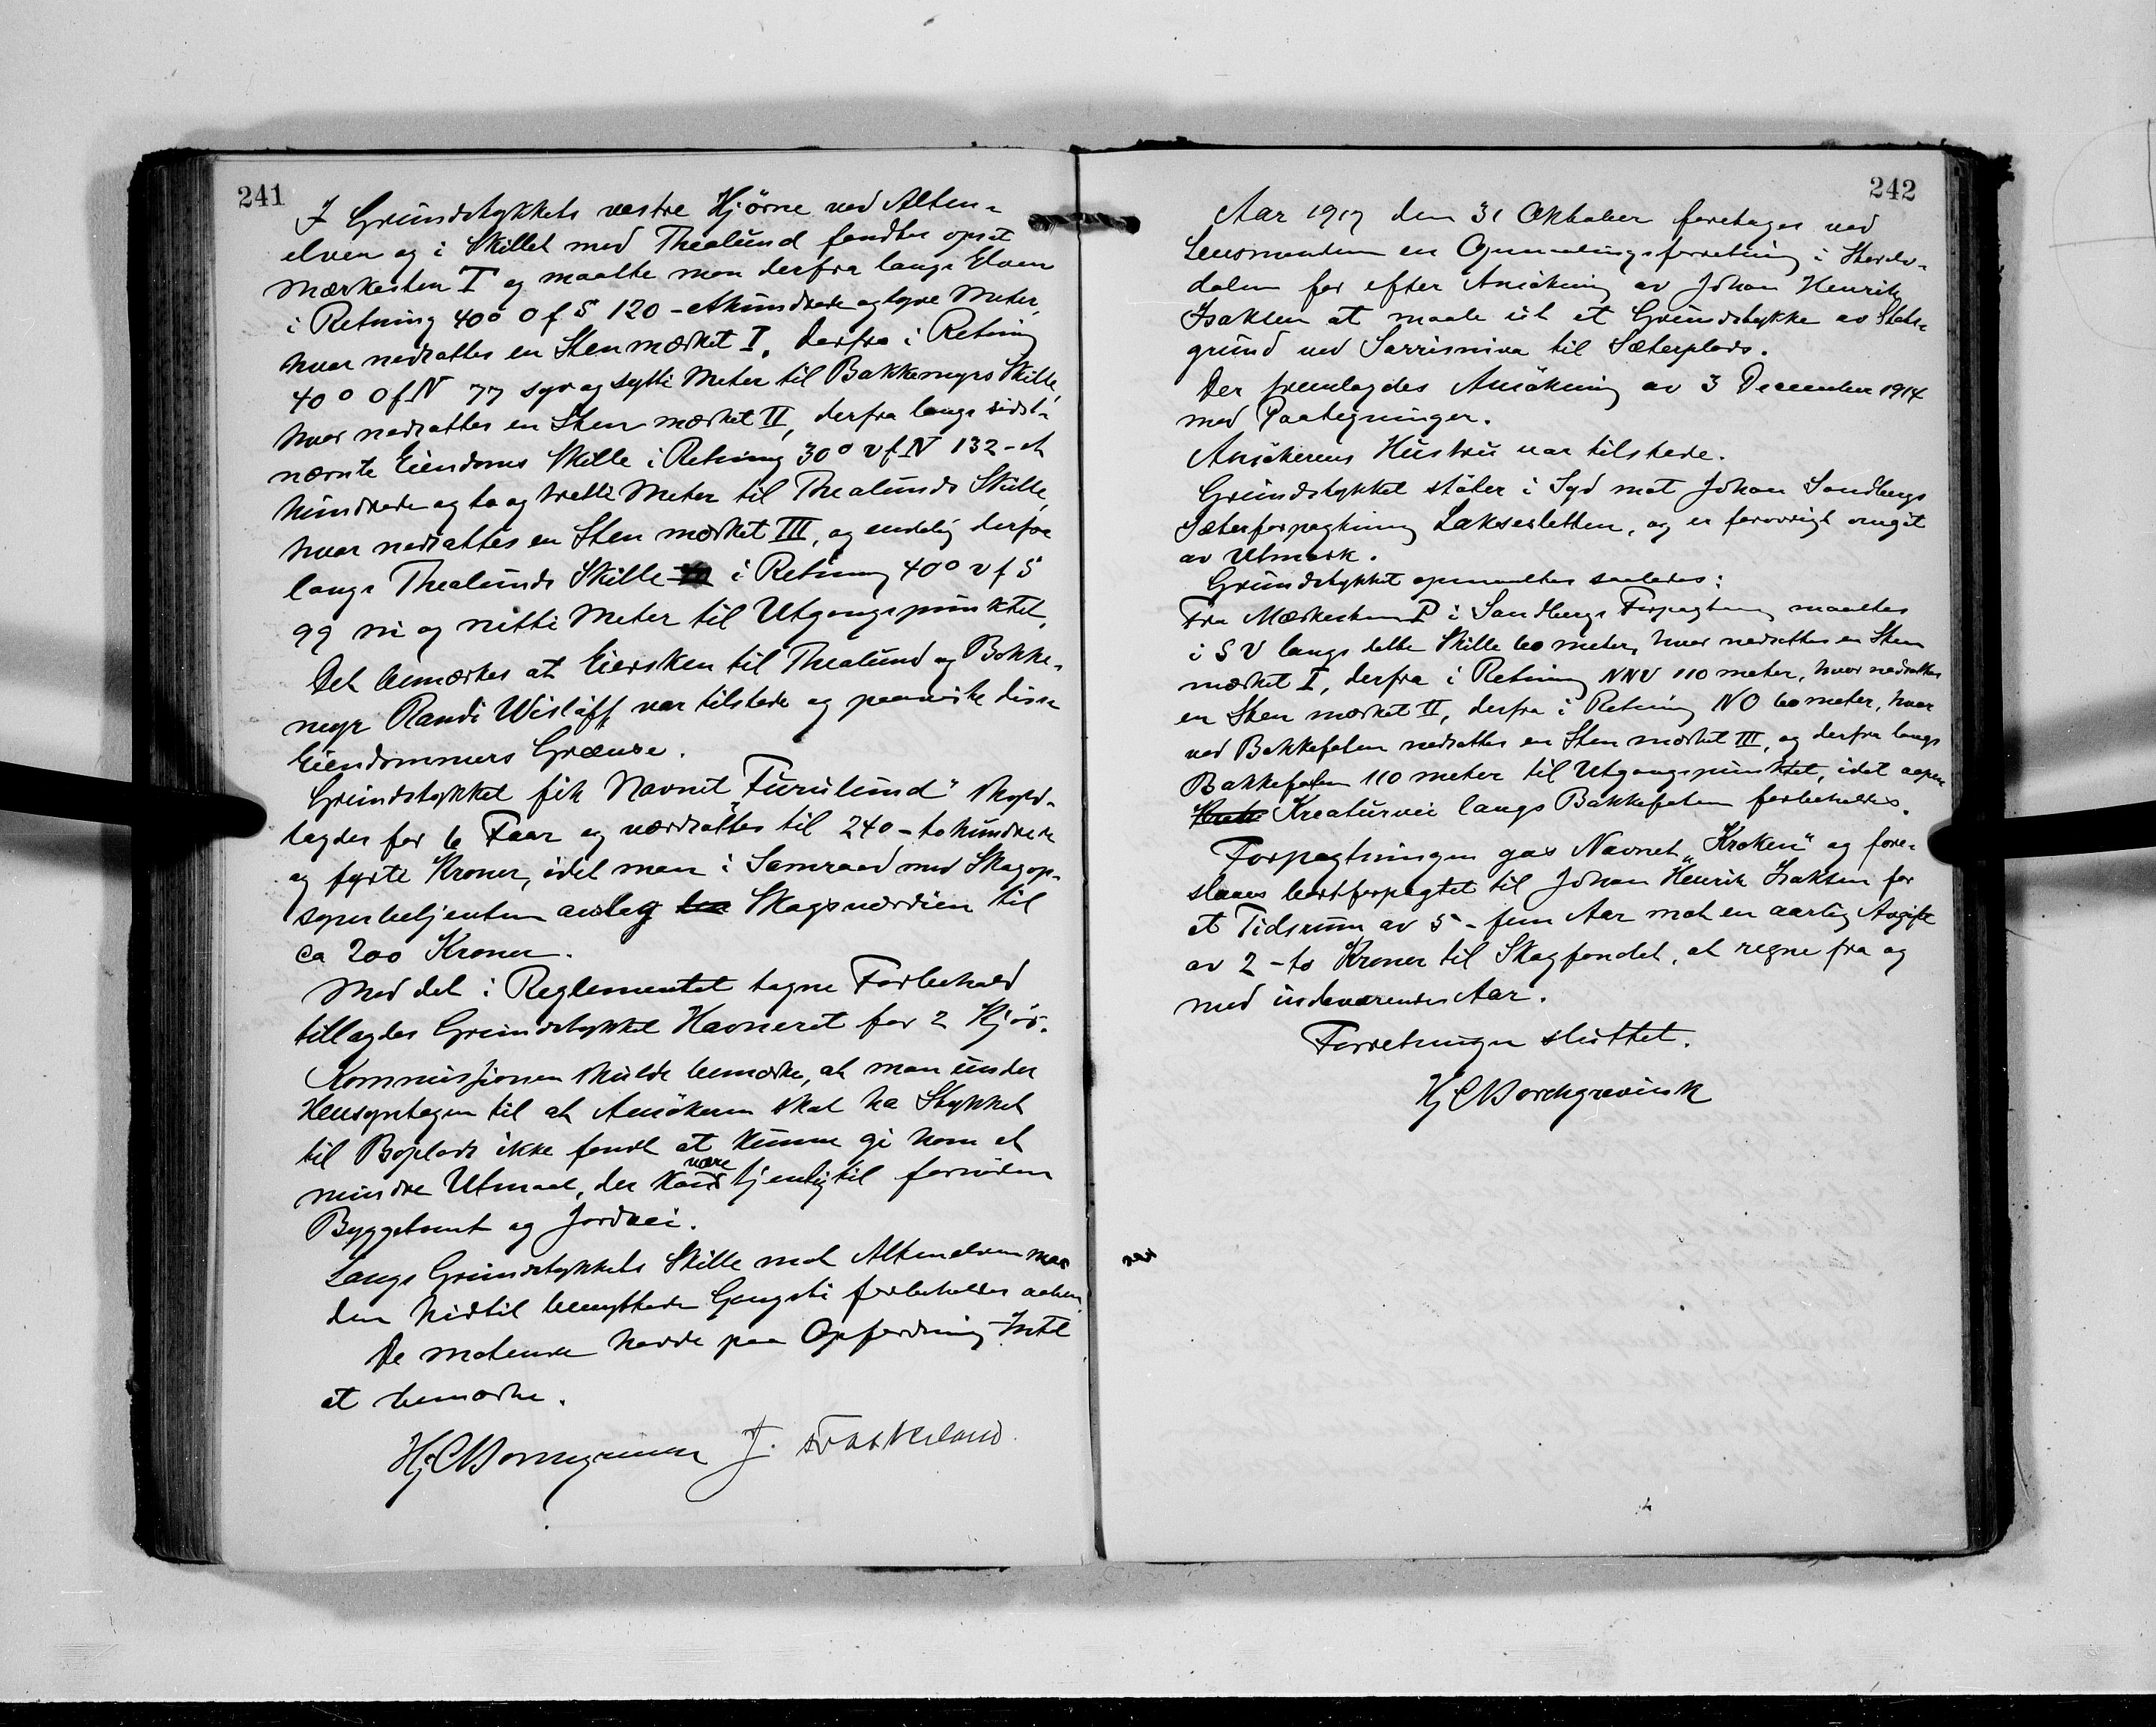 241
I Grundstykkets vestre Hjörne ved Alten-
elven og i Skillet med Thealund fandtes opsat
Mærkesten I og maalte man derfra langs Elven
i Retning 40° O f S 120 - ethundrede og tyve Meter,
hvor nedsattes en Sten mærket I, derfra i Retning
40° O f N 77 syv og sytti Meter til Bakkemyrs Skille,
hvor nedsattes en Sten mærket II, derfra langs sidst-
nævnte Eiendoms Skille i Retning 30° V f N 132 - et
hundrede og to og tretti Meter til Thealunds Skille,
hvor nedsattes en Sten mærket III, og endelig derfra
langs Thealunds Skille i Retning 40° V f S
99 ni og nitti Meter til Utgangspunktet.
Det bemærkes at Eiersken til Thealund og Bakke-
myr Randi Wislöff var tilstede og paaviste disse
Eiendommers Grænse.
Grundstykket fik Navnet "Furulund" skyld-
lagdes for 6 Faar og værdsattes til 240 - tohundrede
og fyrti Kroner, idet man i Samraad med Skogop-
synsbetjenten anslog Skogsværdien til
ca 200 Kroner.
Med det i Reglementet tagne Forbehold
tillagdes Grundstykket Havneret for 2 Kjör.
Kommissjonen skulde bemærke, at man under
Hensyntagen til at Ansökeren skal ha Stykket
til Boplads ikke fandt at kunne gi ham et
mindre Utmaal, der kan være tjenlig til fornöden
Byggetomt og Jordvei.
Langs Grundstykkets Skille mot Altenelven maa
den hidtil benyttede Gangsti forbeholdes aaben.
De mötende havde paa Opfordring Intet
at bemærke.
Hj C Borchgrevink J.
242
Aar 1917 den 31 Oktober foretoges ved
Lensmanden en Opmaalingsforretning i Stords-
dalen for efter Ansökning av Johan Henrik
Isaksen at maale ut et Grundstykke av Stats-
grund ved Sarrisniva til Sæterplads.
Der fremlagdes Ansökning av 3 December 1914
med Paategninger.
Ansökerens Hustru var tilstede.
Grundstykket stöter i Syd mot Johan Sandbergs
Sæterforpagtning Laksesletten, og er forövrigt omgit
av Utmark.
Grundstykket opmaaltes saaledes:
Fra Mærkesten I i Sandbergs Forpagtning maaltes
i S V langs dette Skille 60 meter, hvor nedsattes en Sten
mærket I, derfra i Retning NNV 110 meter, hvor nedsattes
en Sten mærket II, derfra i Retning NO 60 meter, hvor
ved Bakkefoten nedsattes en Sten mærket III, og derfra langs
Bakkefoten 110 meter til Utgangspunktet, idet aapen
Kreaturvei langs Bakkefoten forbeholdes.
Forpagtningen gas Navnet "Kroken" og fore-
slaaes bortforpagtet til Johan Henrik Isaksen for
et Tidsrum av 5 - fem Aar mot en aarlig Avgift
av 2 - to Kroner til Skogfondet, at regne fra og
med indeværende Aar.
Forretningen sluttet.
Hj C Borchgrevink